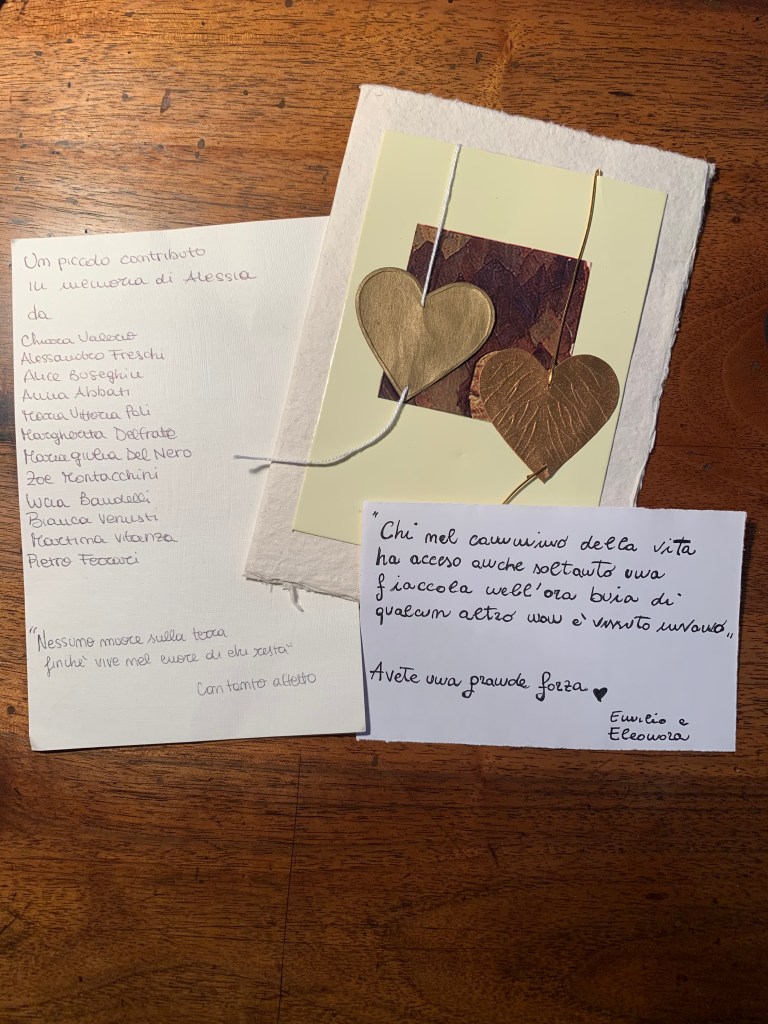 Un piccolo contributo
in memoria di Alessia
da
Chiara Valerio
Alessandro Freschi
Alice Buseghin
Anna Abbati
Maria Vittoria Poli
Margherita Delfrate
Mariagiulia Del Nero
Zoe Montacchini
Lucia Bandelli
Bianca Venusti
Martina Vitanza
Pietro Ferrari
"Nessuno muore sulla terra
finchè vive nel cuore di chi resta"
Con tanto affetto
"Chi nel cammino della vita
ha acceso anche soltanto una
fiaccola nell'ora buia di
qualcun altro non è vissuto invano„
Avete una grande forza ♥
Emilio e
Eleonora